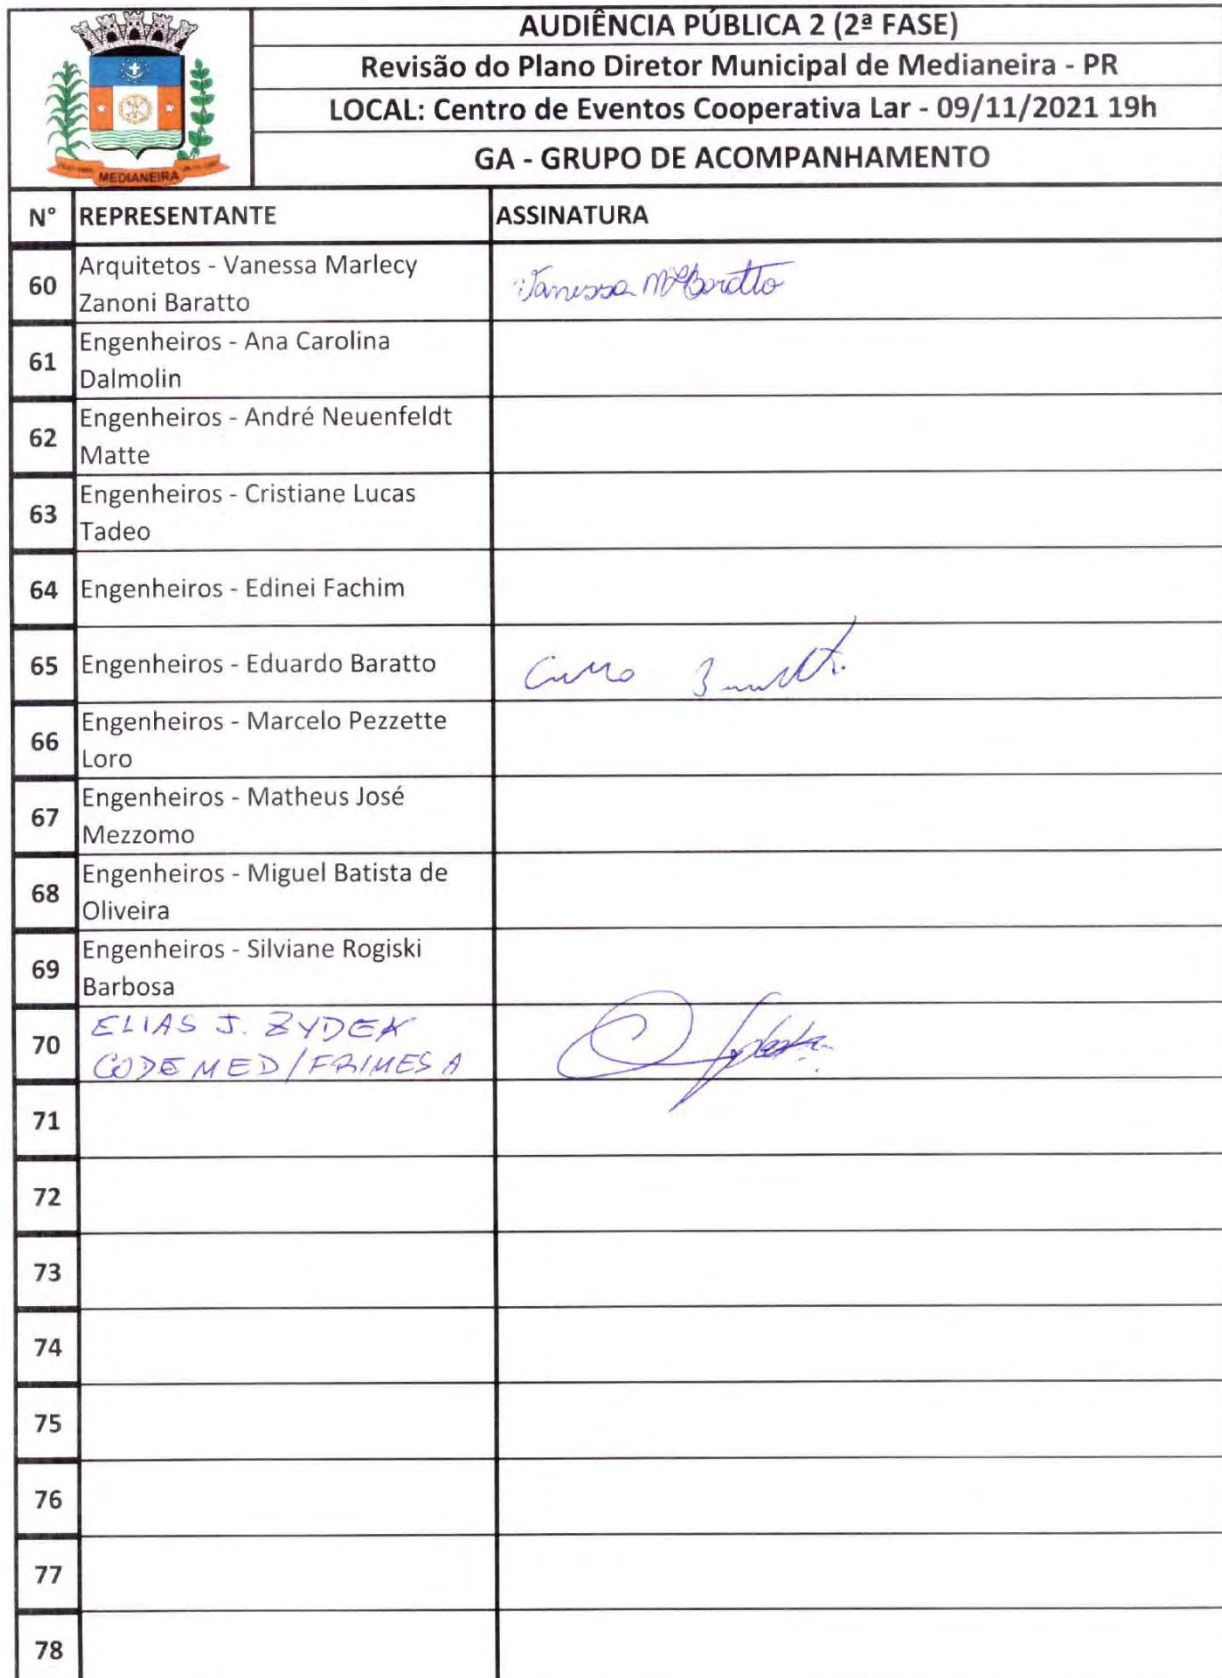 AUDIÊNCIA PÚBLICA 2 (2ª FASE)
Revisão do Plano Diretor Municipal de Medianeira - PR
LOCAL: Centro de Eventos Cooperativa Lar - 09/11/2021 19h
GA - GRUPO DE ACOMPANHAMENTO
MEDIANEIRA
N° REPRESENTANTE ASSINATURA
60 Arquitetos - Vanessa Marlecy
Zanoni Baratto
Vanessa M Z Baratto
61 Engenheiros - Ana Carolina
Dalmolin
62 Engenheiros - André Neuenfeldt
Matte
63 Engenheiros - Cristiane Lucas
Tadeo
64 Engenheiros - Edinei Fachim
65 Engenheiros - Eduardo Baratto
66 Engenheiros - Marcelo Pezzette
Loro
67 Engenheiros - Matheus José
Mezzomo
68 Engenheiros - Miguel Batista de
Oliveira
69 Engenheiros - Silviane Rogiski
Barbosa
70 ELIAS J. ZYDEK
CODEMED/FRIMESA
71
72
73
74
75
76
77
78